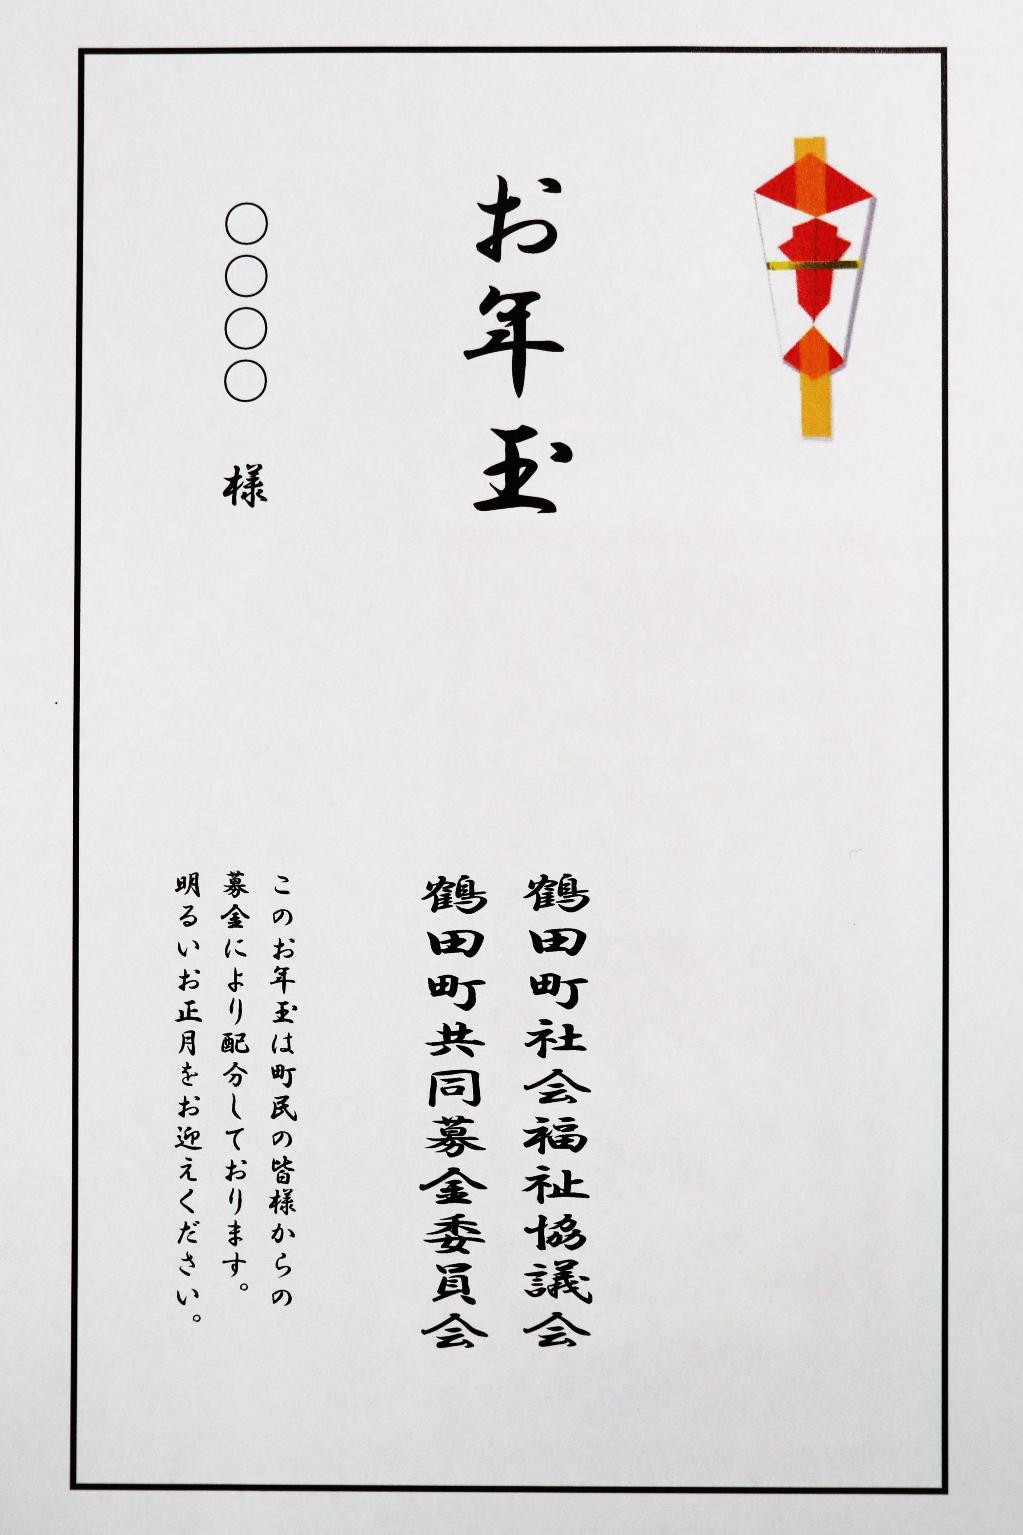 お年玉
鶴田町社会福祉協議会
鶴田町共同募金委員会
このお年玉は町民の皆様からの
募金により配分しております。
明るいお正月をお迎えください。
〇〇〇〇 様